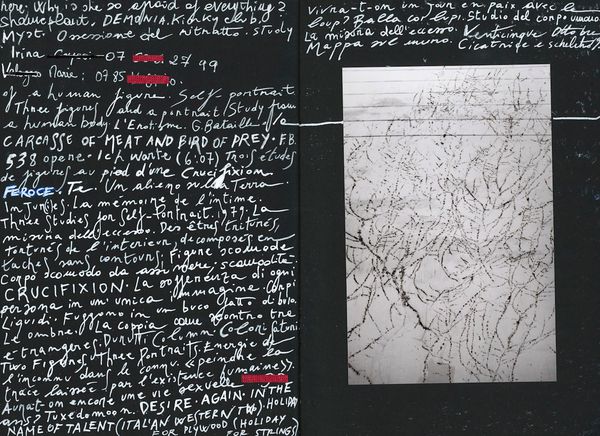 here, Why is she so afraid of everything?
DEMONIA. Kinky club.
Myst. Ossessione del ritratto. Study
Irina 07 27 99
Maria: 07 85
of a human figure. Self-portrait
Three figures and a portrait. Study from
a human body. L'Erotisme. G. Bataille. of a
CARCASSE OF MEAT AND BIRD OF PREY. F.B.
538 opere. Ich warte (6:07) Trois études
de figures au pied d'une Crucifixion
FEROCE. Te. Un alieno sulla Terra.
Injuries. La mémoire de l'intime.
Three Studies for Self-Portrait. 1979. La
misura dell'eccesso. Des êtres triturés,
torturés de l'interieur, decomposés en
taches sans contours, Figure scomode
Corpo scomodo da
CRUCIFIXION. La sofferenza di ogni
persona in un'unica immagine. Corpi
Liquidi. Fuggono in un buco fatto di buio.
Le ombre. La coppia come scontro tra
e trangères. Durutti Column. Colori saturi
Two Figures. Three Portraits. Energie de
l'inconnu dans le connu. «peindre la
trace laissée par l'existence humaine».
Aurait-on encore une vie sexuelle
ans? Tuxedomoon. DESIRE. AGAIN. IN THE
NAME OF TALENT (ITALIAN WESTERN TWO). HOLIDAY
FOR PLYWOOD (HOLIDAY
FOR STRINGS)
vivra-t-on un jour en paix avec le
loup? Balla coi lupi. Studio del corpo umano.
La misura dell'eccesso. Venticinque Ottobre
Mappa sul muro. Cicatrici e scheletri.